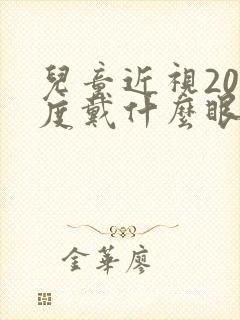 兒童近視20
度戴什麼眼
金華廖